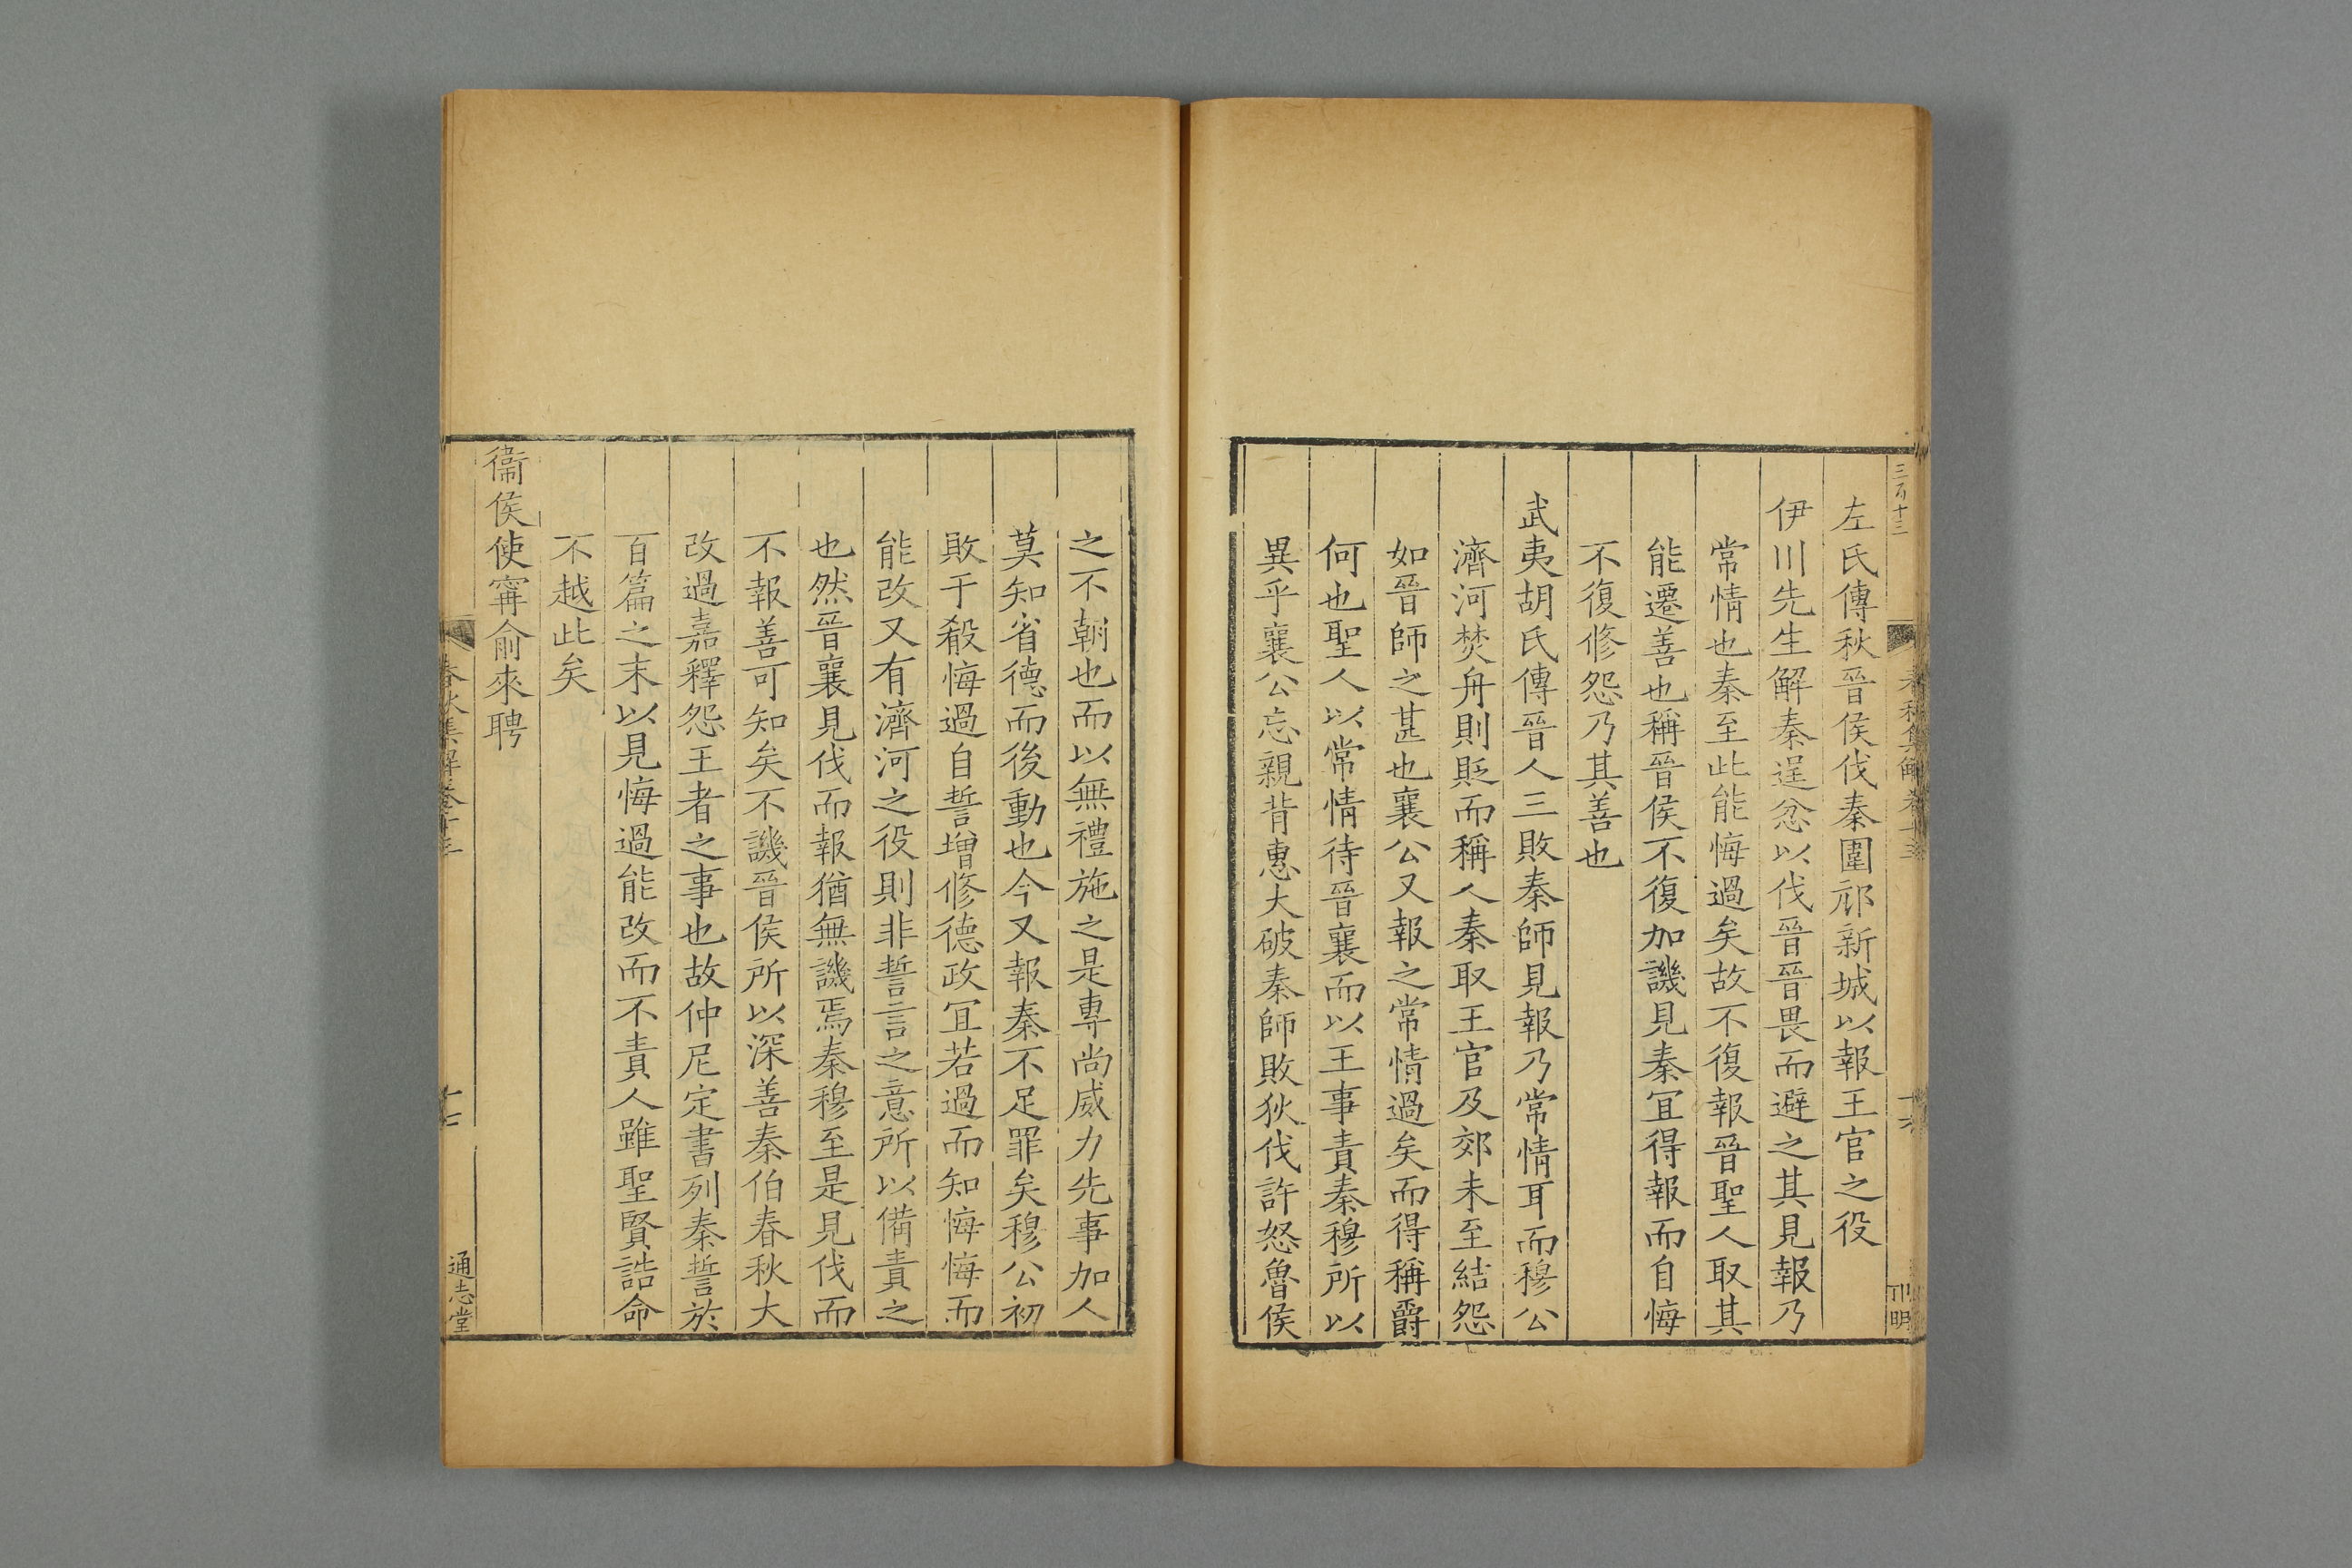 三百十三
左氏傳秋晉侯伐秦圍邧新城以報王官之役
伊川先生解秦逞忿以伐晉晉畏而避之其見報乃
常情也秦至此能悔過矣故不復報晉聖人取其
能遷善也稱晉侯不復加譏見秦宜得報而自悔
不復修怨乃其善也
武夷胡氏傳晉人三敗秦師見報乃常情耳而穆公
濟河焚舟則貶而稱人秦取王官及郊未至結怨
如晉師之甚也襄公又報之常情過矣而得稱爵
何也聖人以常情待晉襄而以王事責秦穆所以
異乎襄公忘親背惠大破秦師敗狄伐許怒魯侯
之不朝也而以無禮施之是專尚威力先事加人
莫知省德而後動也今又報秦不足罪矣穆公初
敗于殽悔過自誓增修德政宜若過而知悔悔而
能改又有濟河之役則非誓言之意所以備責之
也然晉襄見伐而報猶無譏焉秦穆至是見伐而
不報善可知矣不譏晉侯所以深善秦伯春秋大
改過嘉釋怨王者之事也故仲尼定書列秦誓於
百篇之末以見悔過能改而不責人雖聖賢誥命
不越此矣
衞侯使甯俞來聘
春秋集解卷十三
十七
通志堂